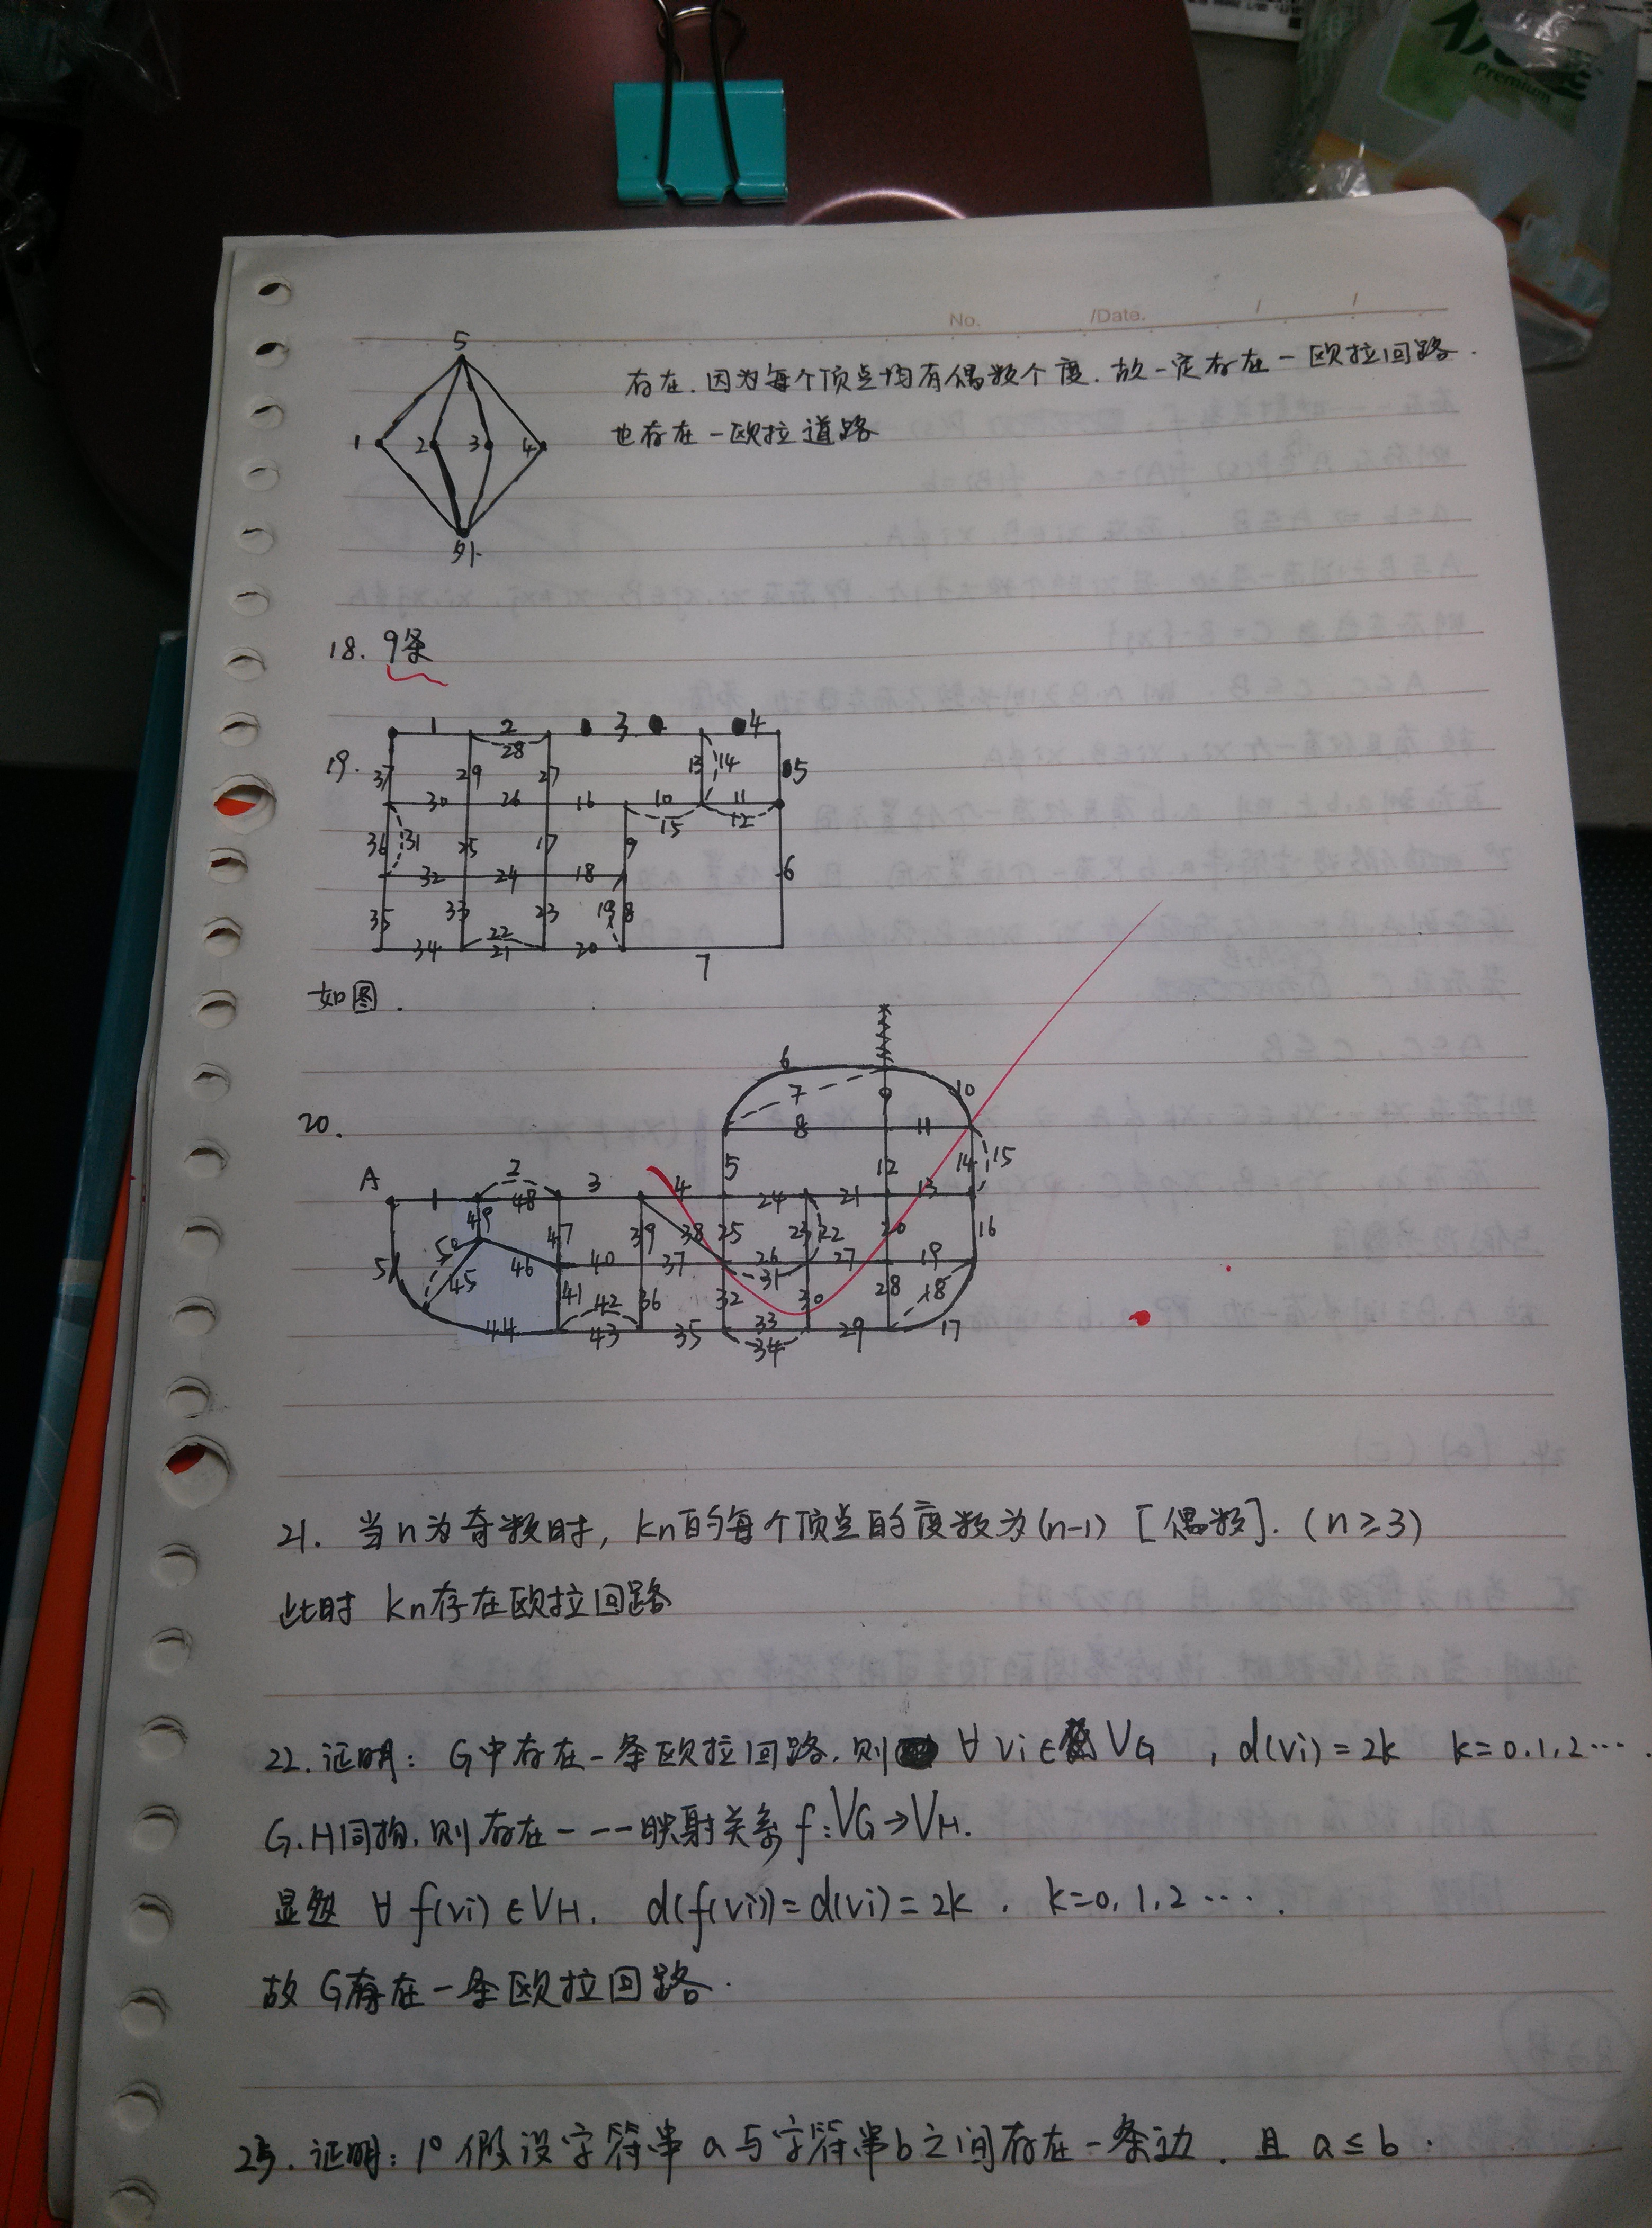 Premium
No. /Date. / /
5
1 2 3 4
外
存在.因为每个顶点均有偶数个度.故一定存在一欧拉回路.
也存在一欧拉道路
18. 9条
19.
1 2 3 4
28
37 29 27 13 14 5
30 26 16 10 11
15 12
36 31 25 17 9 6
32 24 18
35 33 23 19 8
22
34 21 20 7
如图.
20.
6
7 9 10
8 11
A 2 5 12 14 15
1 48 3 4 24 21 13
49 47 39 38 25 23 22 20 16
50 46 40 37 26 27 19
51 45 31
41 42 36 32 30 28 18
44 43 35 33 29 17
34
21. 当n为奇数时, kn的每个顶点的度数为(n-1) [偶数]. (n≥3)
此时 kn存在欧拉回路
22. 证明: G中存在一条欧拉回路.则 ∀ vi ∈ VG , d(vi)=2k k=0.1.2….
G.H同构.则存在一一一映射关系 f:VG→VH.
显然 ∀ f(vi) ∈VH. d(f(vi))=d(vi)=2k . k=0,1,2 ….
故 G存在一条欧拉回路.
25. 证明: 1° 假设字符串a与字符串b之间存在一条边. 且 a≤b.